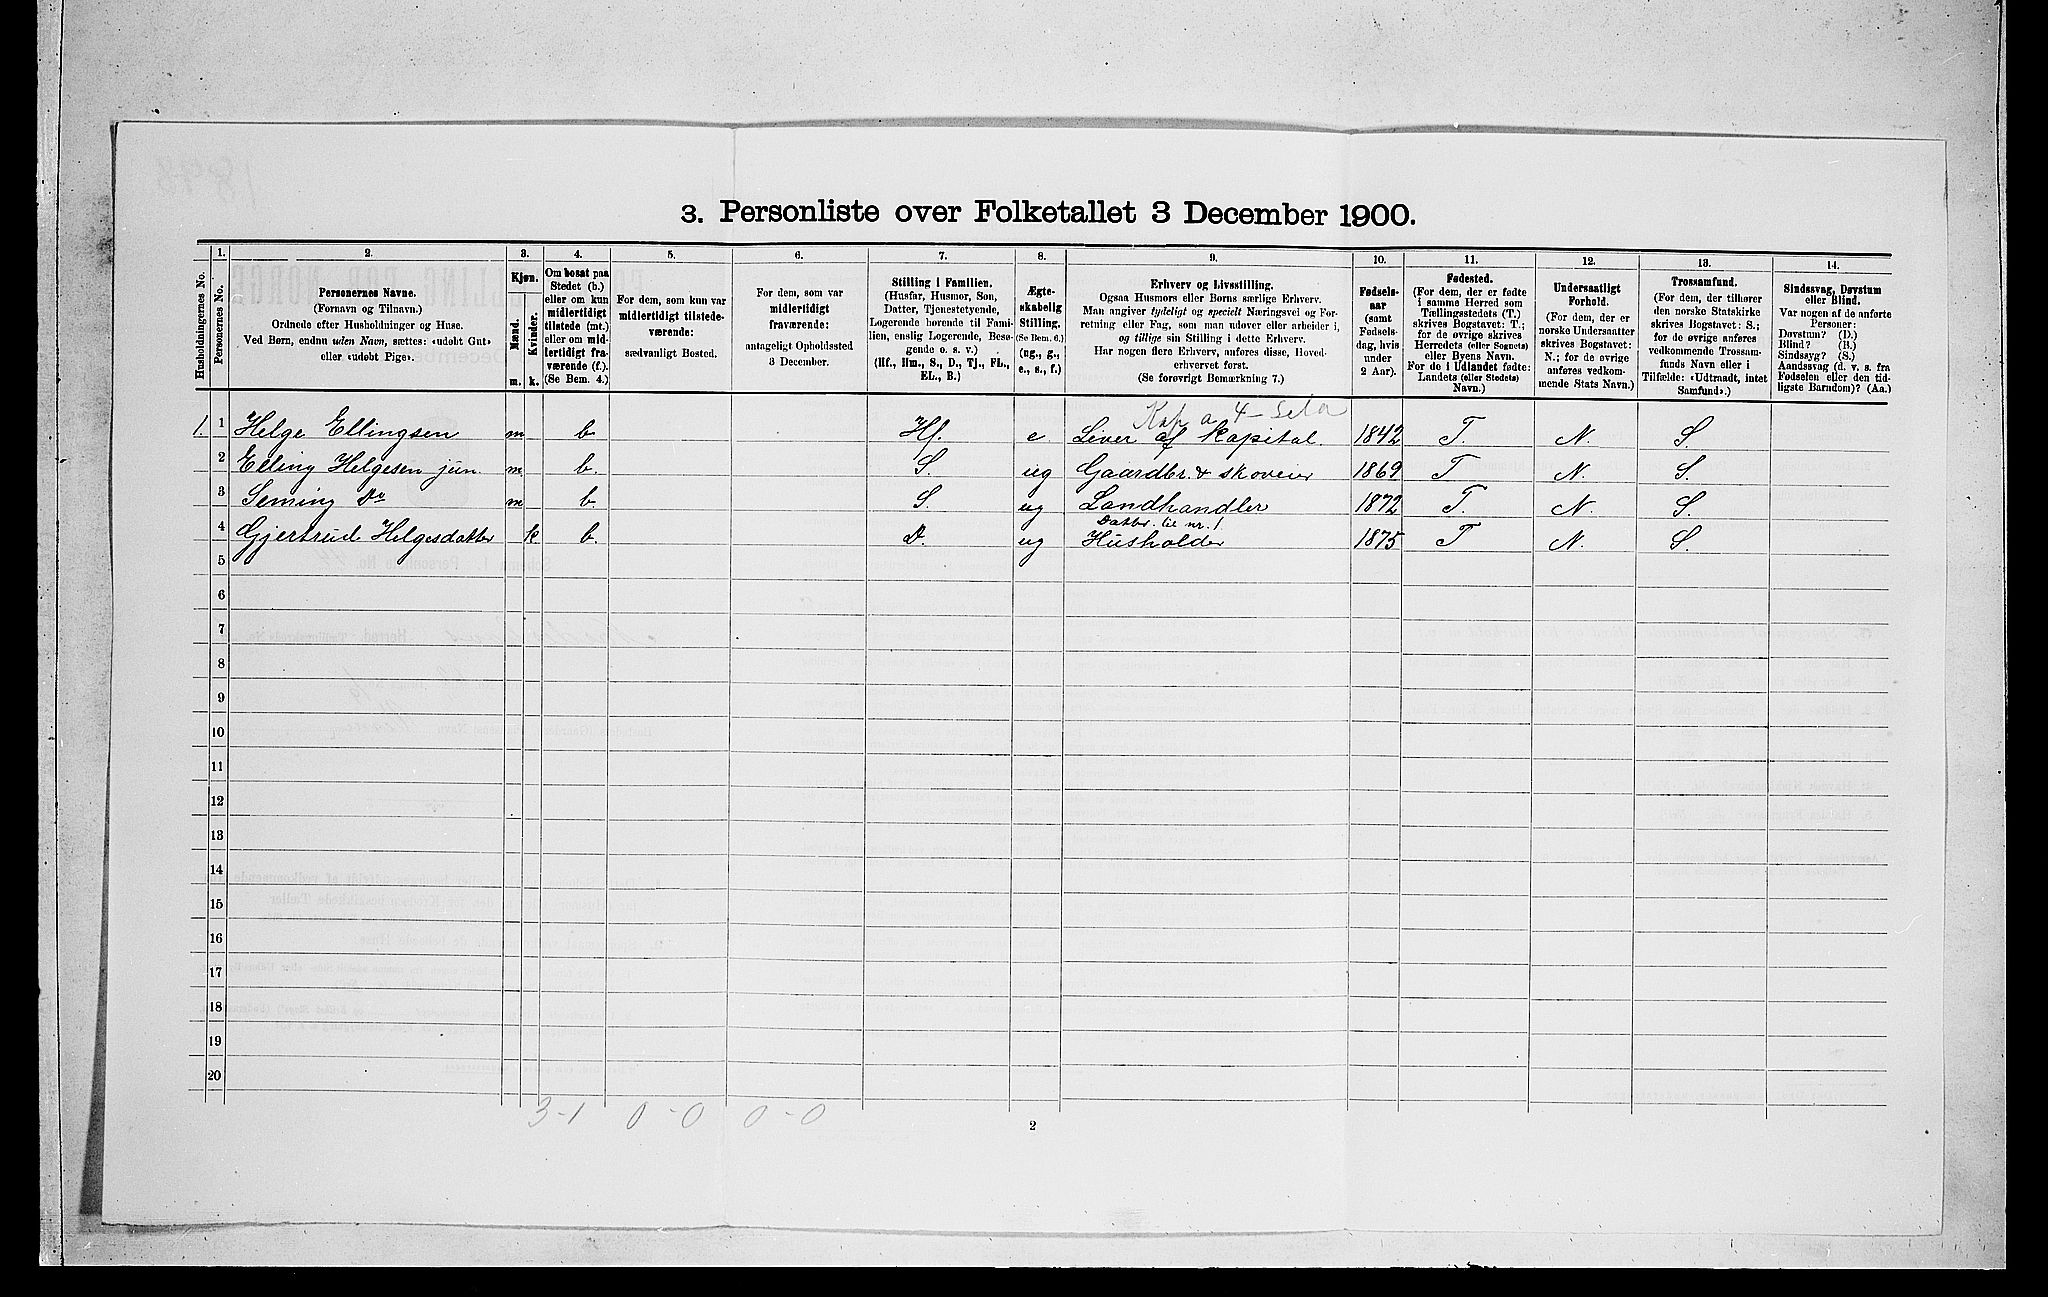 3. Personliste over Folketallet 3 December 1900.
Husholdningernes No.
1.
Personernes No.
2.
Personernes Navne.
(Fornavn og Tilnavn.)
Ordnede efter Husholdninger og Huse.
Ved Børn, endnu uden Navn, sættes: «udøbt Gut»
eller «udøbt Pige».
3.
Kjøn.
Mænd.
Kvinder.
m. k.
4.
Om bosat paa
Stedet (b.)
eller om kun
midlertidigt
tilstede (mt.)
eller om mid-
lertidigt fra-
værende (f.).
(Se Bem. 4.)
5.
For dem, som kun var
midlertidigt tilstede-
værende:
sædvanligt Bosted.
6.
For dem, som var
midlertidigt
fraværende:
antageligt Opholdssted
3 December.
7.
Stilling i Familien.
(Husfar, Husmor, Søn,
Datter, Tjenestetyende,
Logerende hørende til Fami-
lien, enslig Logerende, Besø-
gende o. s. v.)
(Hf., Hm., S., D., Tj., FL.,
EL., B.)
8.
Ægte-
skabelig
Stilling.
(Se Bem. 6.)
(ug., g.,
e., s., f.)
9.
Erhverv og Livsstilling.
Ogsaa Husmors eller Børns særlige Erhverv.
Man angiver tydeligt og specielt Næringsvei og For-
retning eller Fag, som man udøver eller arbeider i,
og tillige sin Stilling i dette Erhverv.
Har nogen flere Erhverv, anføres disse, Hoved-
erhvervet først.
(Se forøvrigt Bemærkning 7.)
10.
Fødsels-
aar
(samt
Fødsels-
dag, hvis
under
2 Aar).
11.
Fødested.
(For dem, der er fødte
i samme Herred som
Tællingsstedets (T.)
skrives Bogstavet: T.;
for de øvrige skrives
Herredets (eller Sognets)
eller Byens Navn.
For de i Udlandet fødte:
Landets (eller Stedets)
Navn.)
12.
Undersaatligt
Forhold.
(For dem, der er
norske Undersaatter
skrives Bogstavet:
N.; for de øvrige
anføres vedkom-
mende Stats Navn.)
13.
Trossamfund.
(For dem, der tilhører
den norske Statskirke
skrives Bogstavet: S.;
for de øvrige anføres
vedkommende Trossam-
funds Navn eller i
Tilfælde: «Udtraadt, intet
Samfund».)
14.
Sindssvag, Døvstum
eller Blind.
Var nogen af de anførte
Personer:
Døvstum? (D.)
Blind? (B.)
Sindssyg? (S.)
Aandssvag (d. v. s. fra
Fødselen eller den tid-
ligste Barndom)? (Aa.)
Kap a 4-
1. 1 Helge Ellingsen m b Hf. e. Lever af Kapital. 1842 T. N. S.
2 Elling Helgesen jun. m. b. S. ug Gaardbr. & skoveier 1869 T N. S.
3 Seming Do m b. S. ug Landhandler 1872 T. N. S.
Datter til nr. 1
4 Gjertrud Helgesdatter k. b. D. ug Husholder 1875 T N. S.
5
6
7
8
9
10
11
12
13
14
15
16
17
18
19
20
3-1 0-0 0-0
2